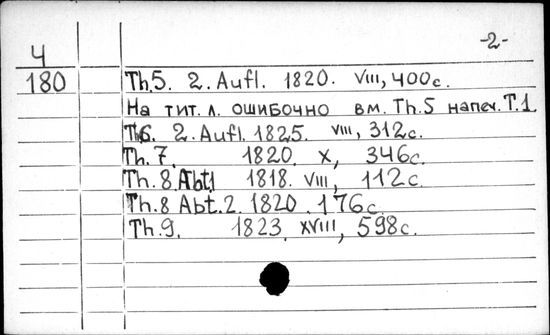 -2-
Ч
180
Th.5. 2. Aufl. 1820. VIII, 400с.
На тит. л. ошибочно вм. Th.5 напеч. Т.1.
Th6. 2. Aufl. 1825. VIII, 312с.
Th.7. 1820. X, 346с.
Th.8.Abt1 1818. VIII, 112с.
Th.8 Abt.2. 1820. 176с.
Th.9. 1823. XVIII, 598с.